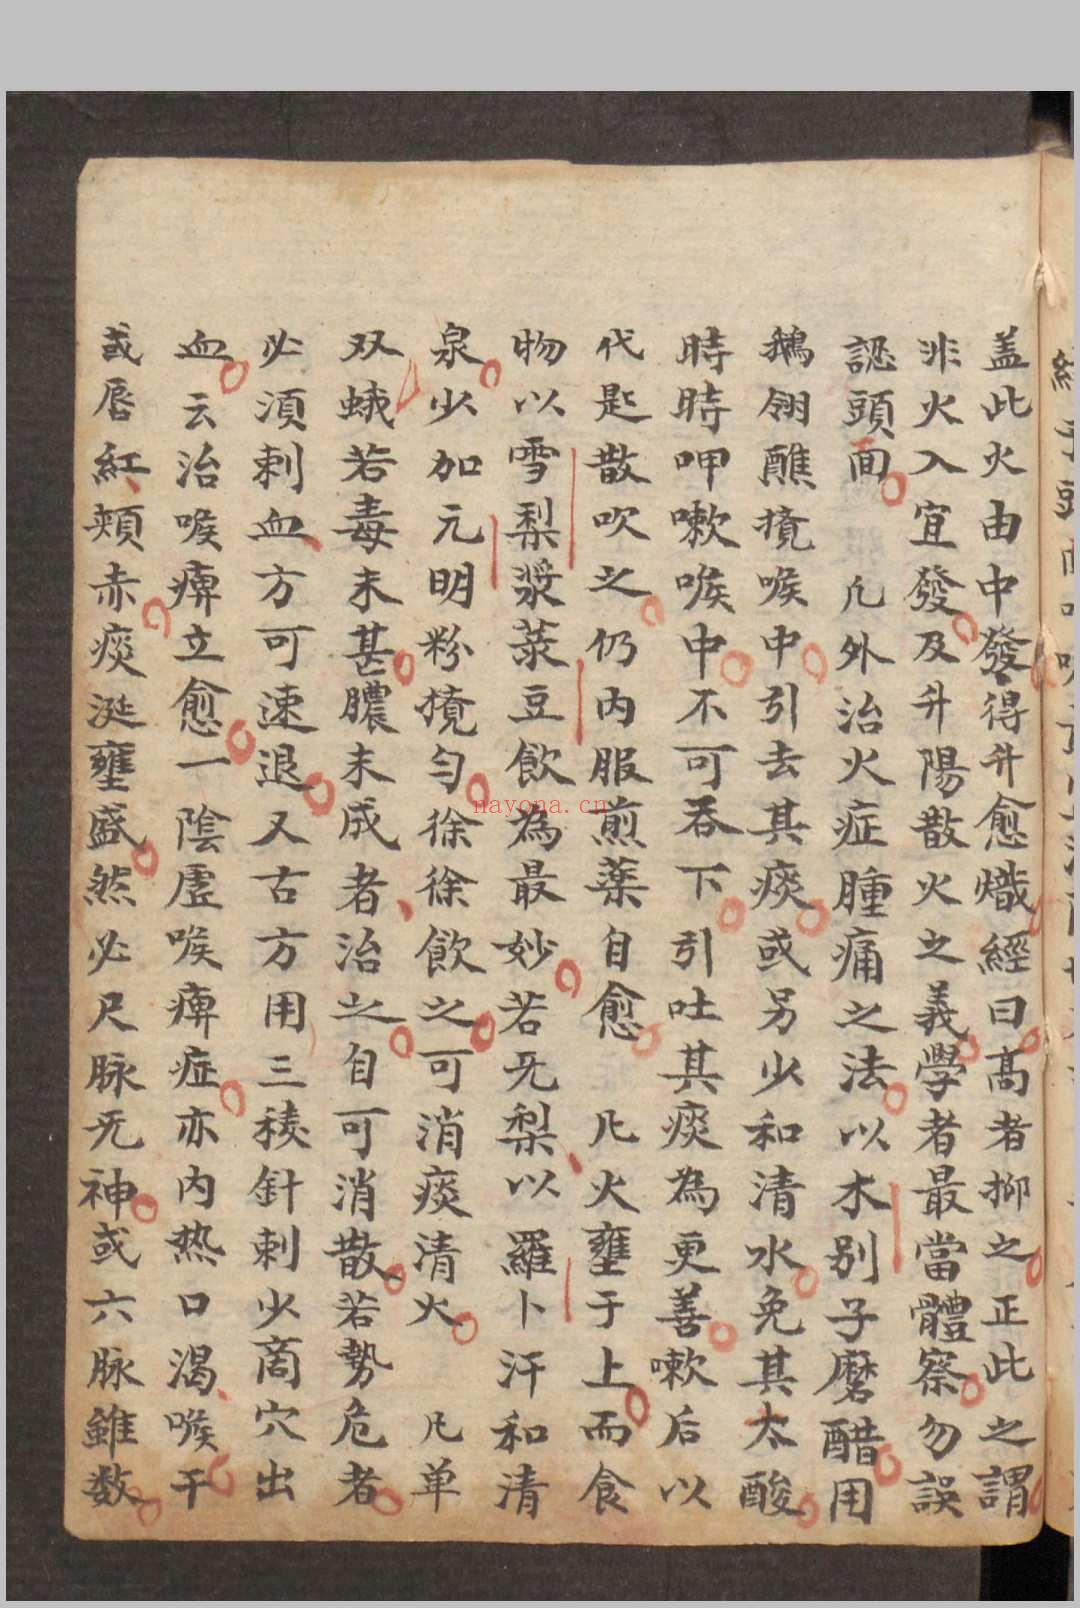 盖此火由中發得升愈熾經曰高者抑之正此之謂
非火入宜發及升陽散火之義學者最當體察勿誤
認頭面 凡外治火症腫痛之法以木别子磨醋用
鵝翎醮撹喉中引去其痰或另少和清水免其太酸
時時呷嗽喉中不可吞下引吐其痰為更善嗽后以
代匙散吹之仍内服煎藥自愈 凡火壅于上而食
物以雪梨漿菉豆飲為最妙若旡梨以羅卜汗和清
泉少加元明粉撹勻徐徐飲之可消痰清火 凡单
双蛾若毒未甚膿未成者治之自可消散若勢危者
必須刺血方可速退又古方用三稜針刺少商穴出
血云治喉痺立愈一陰虛喉痺症亦内热口渴喉干
或唇紅頰赤痰涎壅盛然必尺脉旡神或六脉雖数
nayona.cn